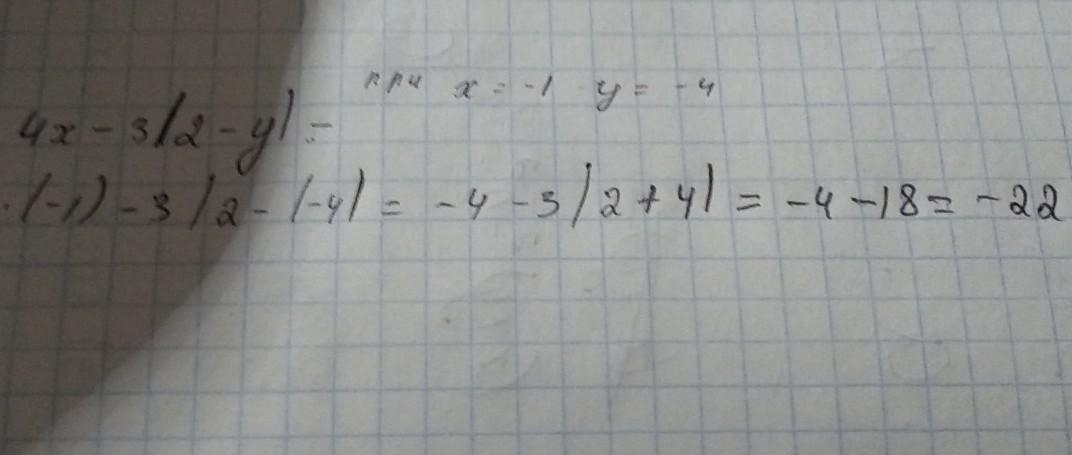 при x = -1 y = -4
4x - 3|2 - y| =
·(-1) - 3|2 - (-4| = -4 - 3|2 + 4| = -4 - 18 = -22